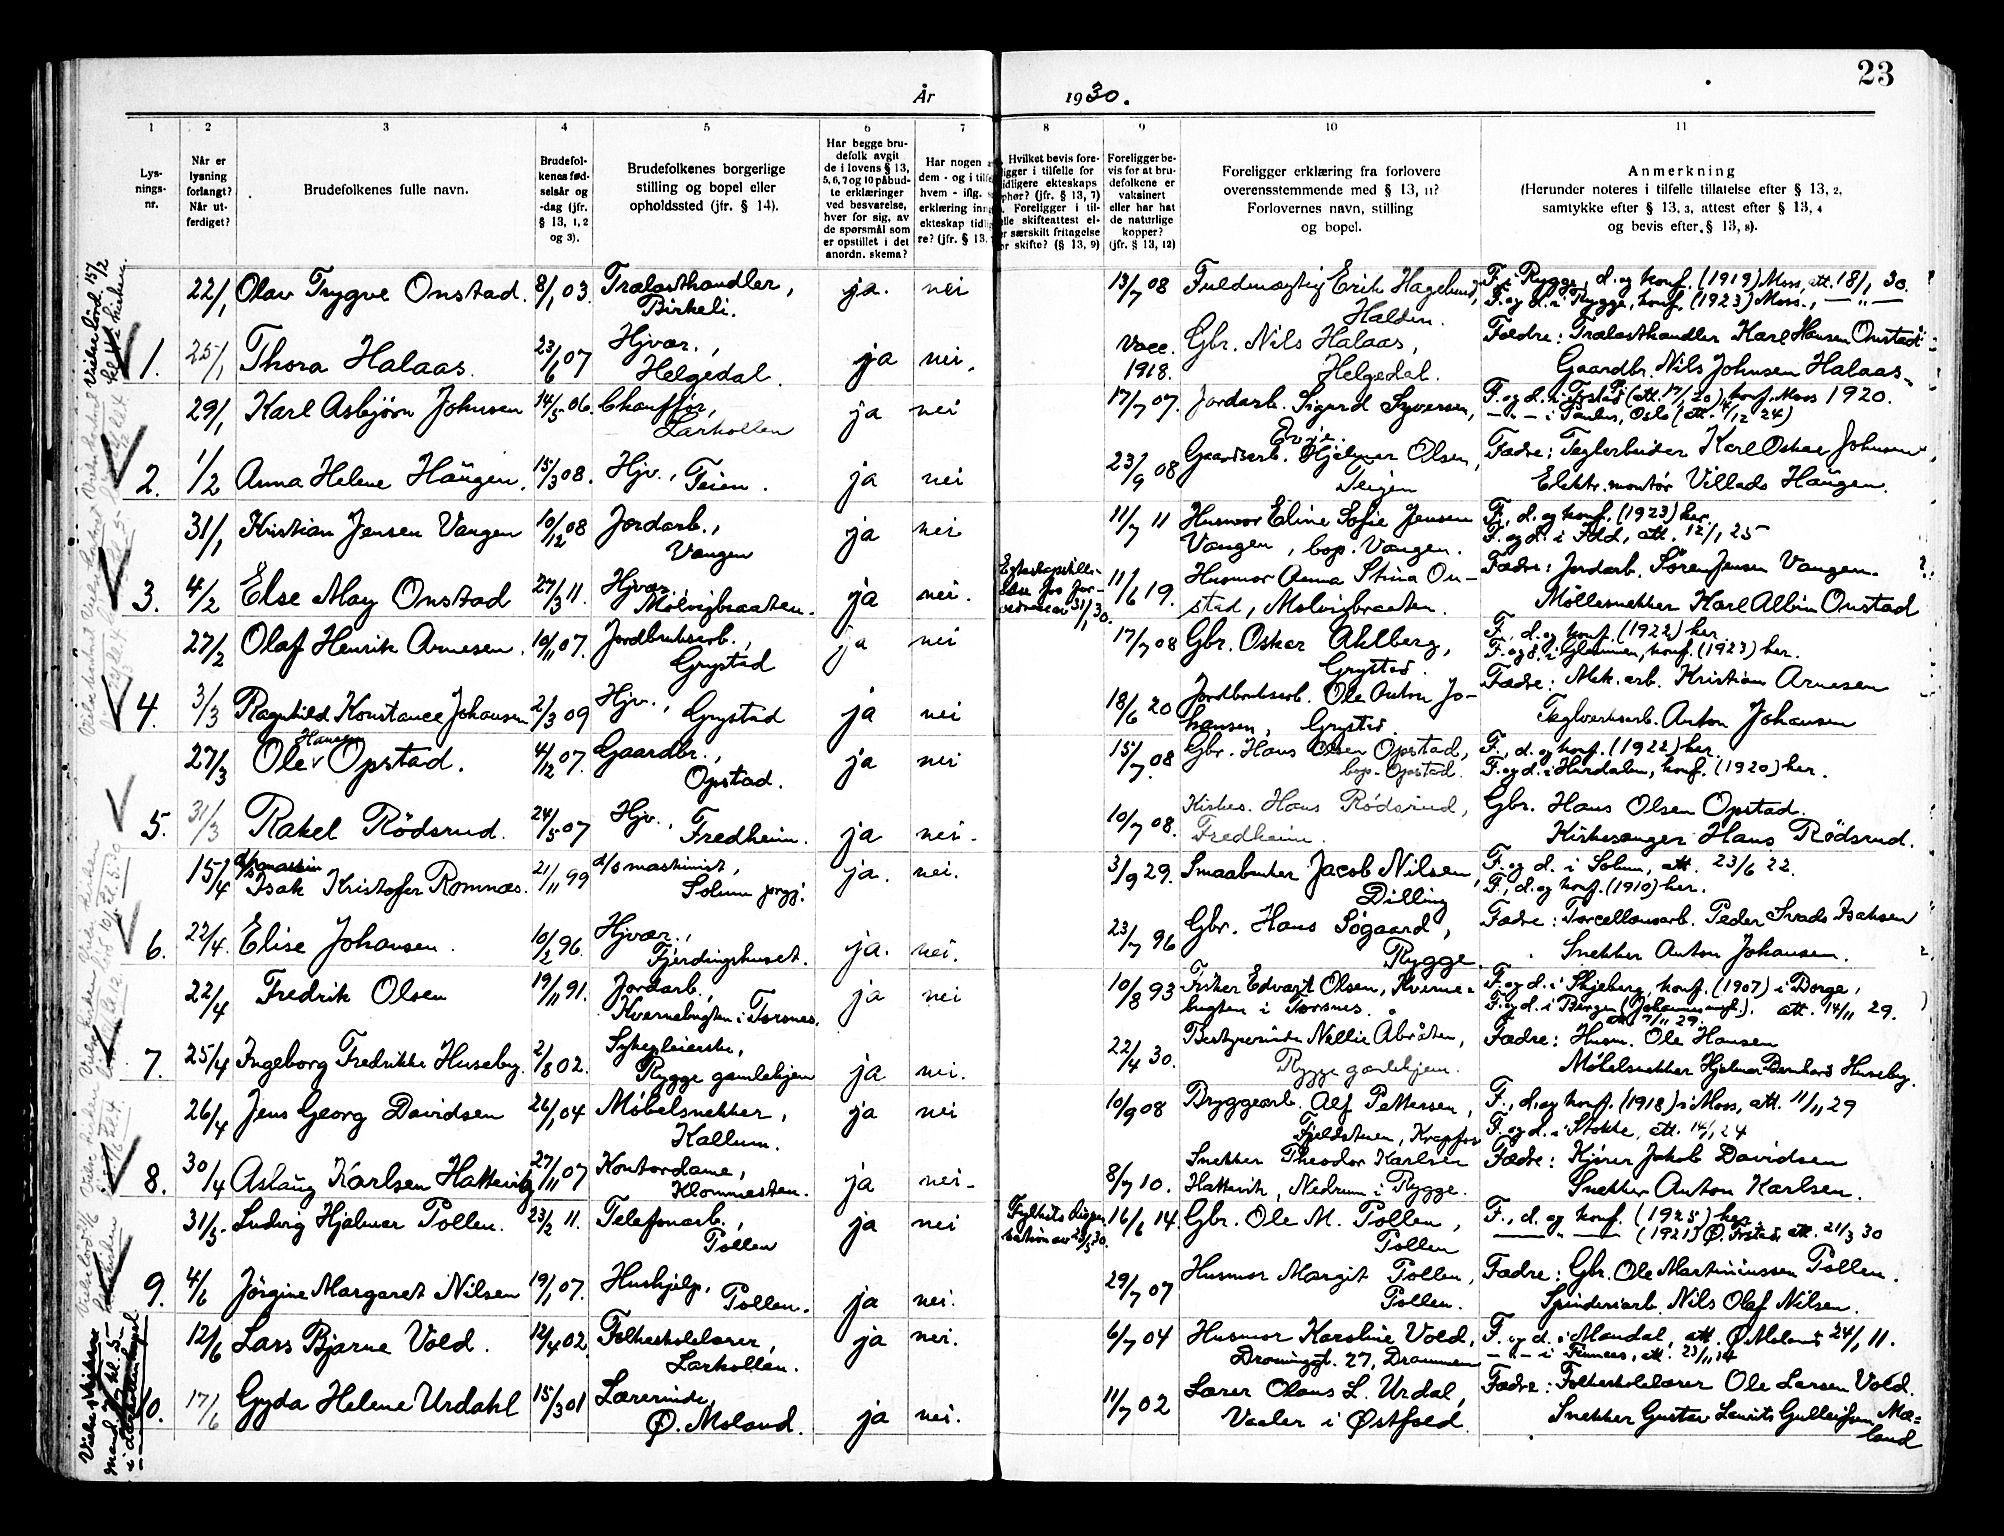 23
År 1930.
1 2 3 4 5 6 7 8 9 10 11
Lys-
nings-
nr.
Når er
lysning
forlangt?
Når ut-
ferdiget?
Brudefolkenes fulle navn.
Brudefol-
kenes fød-
selsår og
-dag (jfr.
§ 13, 1, 2
og 3).
Brudefolkenes borgerlige
stilling og bopel eller
opholdssted (jfr. § 14).
Har begge bru-
defolk avgit
de i lovens § 13,
5, 6, 7 og 10 påbud-
te erklæringer
ved besvarelse,
hver for sig, av
de spørsmål som
er opstillet i det
anordn. skema?
Har nogen a
dem - og i tilfe
hvem - iflg. s
erklæring inng
ekteskap tidli
re? (jfr. § 13,
Hvilket bevis fore-
ligger i tilfelle for
tidligere ekteskaps
ophør? (jfr. § 13, 7)
Foreligger i til-
felle skifteattest el-
er særskilt fritagelse
or skifte? (§ 13, 9)
Foreligger be-
vis for at bru-
defolkene er
vaksinert
eller har hat
de naturlige
kopper?
(jfr. § 13, 12)
Foreligger erklæring fra forlovere
overensstemmende med § 13, 11?
Forlovernes navn, stilling
og bopel.
Anmerkning
(Herunder noteres i tilfelle tillatelse efter § 13, 2,
samtykke efter § 13, 3, attest efter § 13, 4
og bevis efter § 13, 8).
22/1 Olav Trygve Onstad. 8/1 03. Trælasthandler, Birkeli. ja. nei 13/7 08 Fuldmægtig Erik Hagelund, Halden. F. i Rygge, d. og konf. (1919) Moss, att. 18/1 30.
F. og d. i Rygge, konf. (1923) Moss., — " —
1. 25/1 Thora Halaas. 23/6 07 Hjvær., Helgedal. ja nei. Vacc. 1918. Gbr. Nils Halaas, Helgedal. Fædre: Trælasthandler Karl Hansen Onstad
Gaardbr. Nils Johnsen Halaas.
29/1 Karl Asbjørn Johnsen 14/5 06. Chauffør, Larkollen ja nei 17/7 07. Jordarb. Sigurd Syversen, Evje. F. og d. i Trøstad (att. 17/1 20), konf. Moss 1920.
— " — i Paulus, Oslo (att. 4/12 24)
2. 1/2 Anna Helene Haugen. 15/3 08. Hjv., Feien. ja nei 23/9 08 Gaardsarb. Hjelmar Olsen, Teigen Fædre: Teglarbeider Karl Oskar Johnsen
Elektr. montør Villads Haugen.
31/1 Kristian Jensen Vangen 10/12 08 Jordarb., Vangen ja nei 11/7 11 Husmor Eline Sofie Jensen
Vangen, bop. Vangen. F., d. og konf. (1923) her.
F. og d. i Fld, att. 12/1 25
3. 4/2 Else May Onstad 27/3 11. Hjvær. Mølvigbraaten. ja nei. 31/1 30. 11/6 19. Husmor Anna Stina On-
stad, Mølvigbraaten. Fædre: Jordarb. Søren Jensen Vangen.
Møllesnekker Karl Albin Onstad
27/2 Olaf Henrik Arnesen. 10/11 07. Jordbruksarb., Grystad ja nei 17/7 08 Gbr. Oskar Ahlberg, Grystad. F., d. og konf. (1922) her.
F. og d. i Glemmen, konf. (1923) her.
4. 3/3 Ragnhild Konstance Johansen 2/3 09 Hjv., Grystad ja nei 18/6 20 Jordbruksarb. Ole Anton Jo-
hansen, Grystad. Fædre: Mek. arb. Kristian Arnesen
Teglverksarb. Anton Johansen
27/3 Ole Hansen Opstad. 4/12 07. Gaardbr., Opstad. ja nei 15/7 08. Gbr. Hans Olsen Opstad,
bop. Opstad. F., d. og konf. (1922) her.
F. og d. i Hurdalen, konf. (1920) her.
5. 31/3 Rakel Rödsrud. 24/5 07 Hjv., Fredheim. ja nei. 10/7 08. Kirkes. Hans Rödsrud,
Fredheim. Gbr. Hans Olsen Opstad.
Kirkesanger Hans Rödsrud.
15/4 Isak Kristofer Romnæs. 21/11 99 d/s maskinist, Solum prgj. ja. nei. 3/9 29. Smaabruker Jacob Nilsen, Dilling F. og d. i Solum, att. 23/6 22.
F., d. og konf. (1910) her.
6. 22/4. Elise Johansen. 10/2 96. Hjvær., Fjerdingshuset. ja. nei. 23/7 96 Gbr. Hans Søgaard, Rygge. Fædre: Porcellænsarb. Peder Svads Isaksen
Snekker Anton Johansen.
22/4 Fredrik Olsen 19/11 91. Jordarb., Kvernebugten i Torsnes. ja nei 10/8 93 Fisker Edvart Olsen, Kverne-
bugten i Torsnes. F. og d. i Skjeberg, konf. (1907) i Borge,
F. og d. i Bergen (Johannes meg.). att. 14/11 29.
att. 7/11 29.
7. 25/4 Ingeborg Fredrikke Huseby. 2/8 02. Sykepleierske, Rygge gamlehjem ja nei. 22/4 30. Bestyrerinde Nellie Åbråten,
Rygge gamlehjem. Fædre: Husm. Ole Hansen
Møbelsnekker Hjelmar Bernhard Huseby.
26/4 Jens Georg Davidsen 26/1 04 Møbelsnekker, Kallum. ja nei 10/9 08 Bryggearb. Alf Pettersen,
Fjeldstuen, Krapfos F., d. og konf. (1918) i Moss, att. 11/11 29
F. og d. i Stokke, att. 14/1 24
8. 30/4 Aslaug Karlsen Hattevig 27/11 07 Kontordame, Klommesten. ja nei. 8/7 10. Snekker Theodor Karlsen
Hattevik, Nedrum i Rygge. Fædre: Kjører Jakob Davidsen
Snekker Anton Karlsen.
31/5. Ludvig Hjalmar Pollen. 23/2 11. Telefonarb., Pollen ja nei Fylkets dispen-
sation av 23/5 30. 16/6 14. Gbr. Ole M. Pollen, Pollen F., d. og konf. (1925) her.
— " — (1921) Ø. Frstad, att. 21/3 30
9. 4/6 Jörgine Margaret Nilsen 19/1 07. Hushjelp, Pollen. ja nei. 29/7 07 Husmor Margit Pollen, Pollen. Fædre: Gbr. Ole Martiniussen Pollen.
Spinderiarb. Nils Olaf Nilsen.
12/6 Lars Bjarne Vold. 12/4 02. Folkeskolelærer, Larkollen. ja nei. 6/7 04 Husmor Karoline Vold,
Dronninggt. 27, Drammen F. og d. i Mandal, att. Ø. Moland 24/1 11.
— " — i Finnaas, att. 23/11 14
10. 17/6 Gyda Helene Urdahl 15/3 01 Lærerinde, Ø. Moland. ja nei. 11/7 02 Lærer Olaus L. Urdal,
Vaaler i Østfold. Fædre: Folkeskolelærer Ole Larsen Vold.
Snekker Gustav Laurits Gulleifsen Mæ-
land